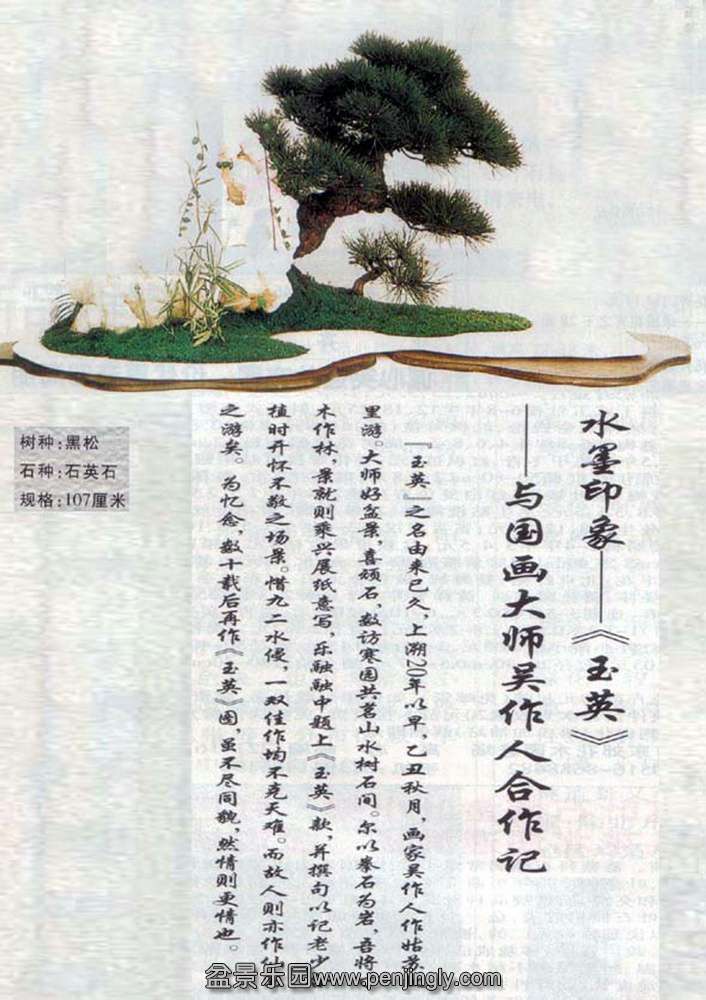 水墨印象——《玉英》
——与国画大师吴作人合作记
『玉英』之名由来已久，上溯20年以早，乙丑秋月，画家吴作人作姑苏
里游。大师好盆景，喜顽石，数访寒园共茗山水树石间。尔以拳石为岩，吾将
木作林，景就则乘兴展纸意写，乐融融中题上《玉英》款，并撰句以记老少
植时开怀不敬之场景。惜九二水侵，一双佳作均不克天难。而故人则亦作仙
之游矣。为忆念，数十载后再作《玉英》图，虽不尽同貌，然情则更情也。
树种:黑松
石种:石英石
规格:107厘米
盆景乐园--www.penjingly.com